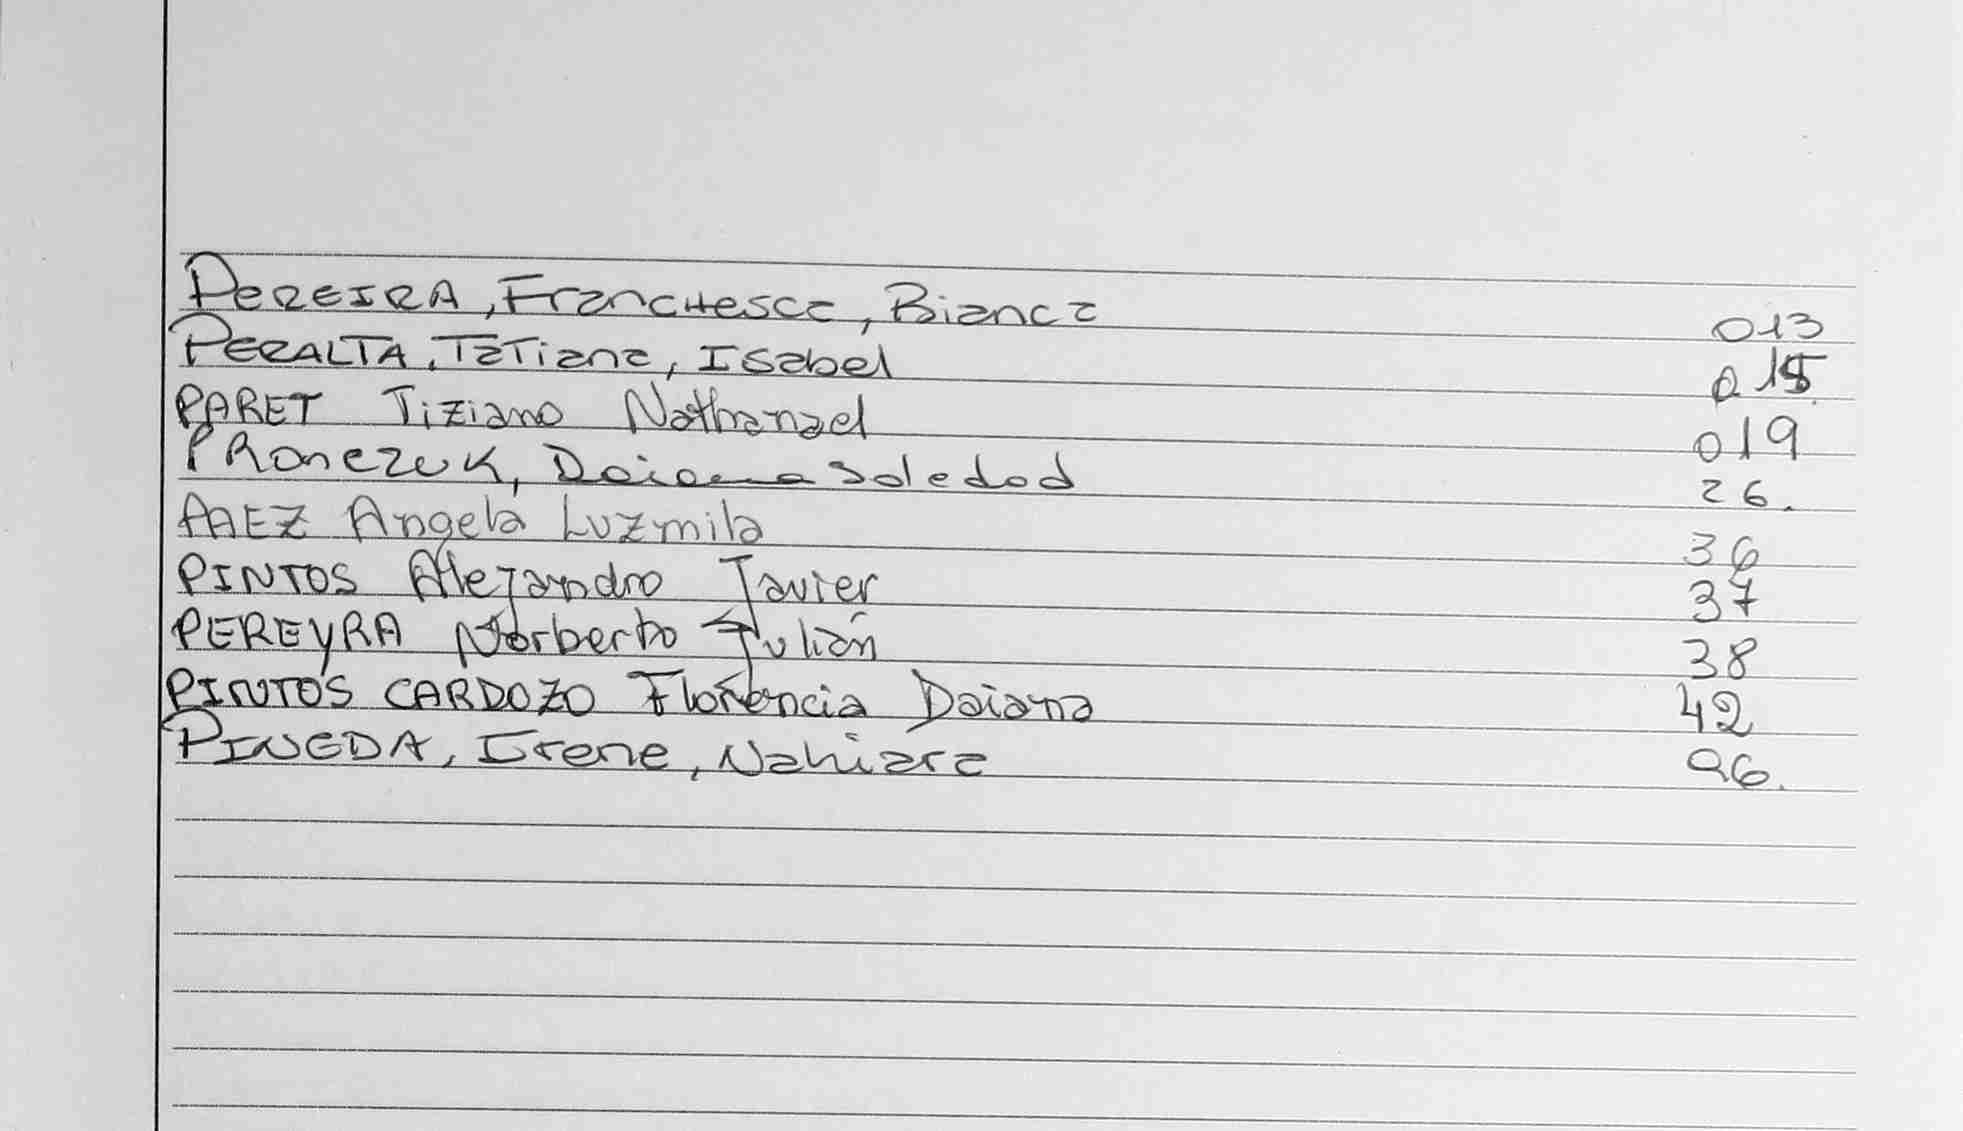 PEREIRA, Franchesca, Bianca 013
PERALTA, Tatiana, Isabel 015
PARET Tiziano Nathanael 019
PRonczuk, Daiana Soledad 26.
PAEZ Angela Luzmila 36
PINTOS Alejandro Javier 37
PEREYRA Norberto Julián 38
PINTOS CARDOZO Florencia Daiana 42
PINEDA, Irene, Nahiara 96.